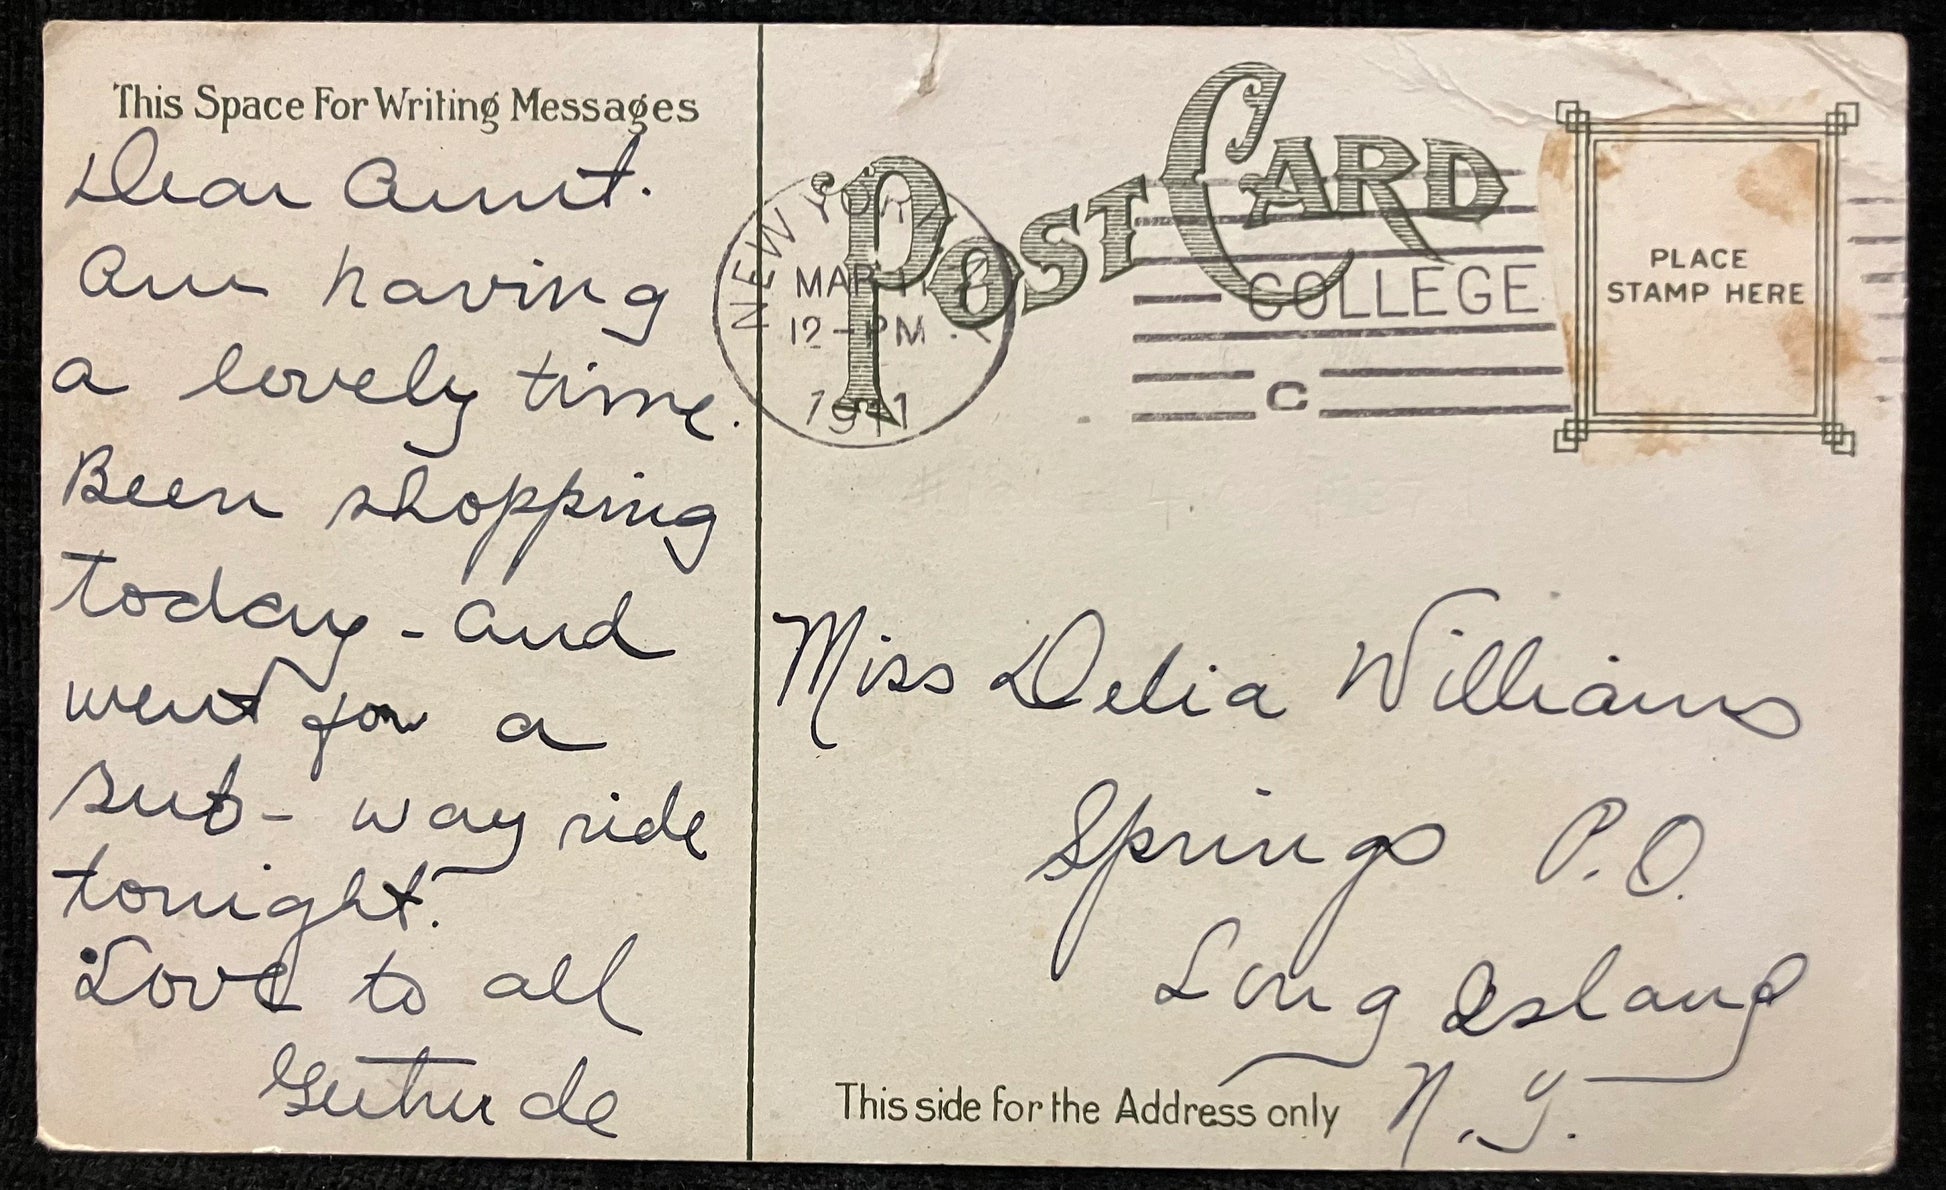 This Space For Writing Messages
Dear Aunt.
Am having
a lovely time.
Been shopping
today - and
went for a
sub-way ride
tonight.
Love to all
Gertrude
POST CARD
NEW YORK
MAR 11
12 - PM
1911
COLLEGE
C
PLACE
STAMP HERE
Miss Delia Williams
Springs P.O.
Long Island
N.Y.
This side for the Address only